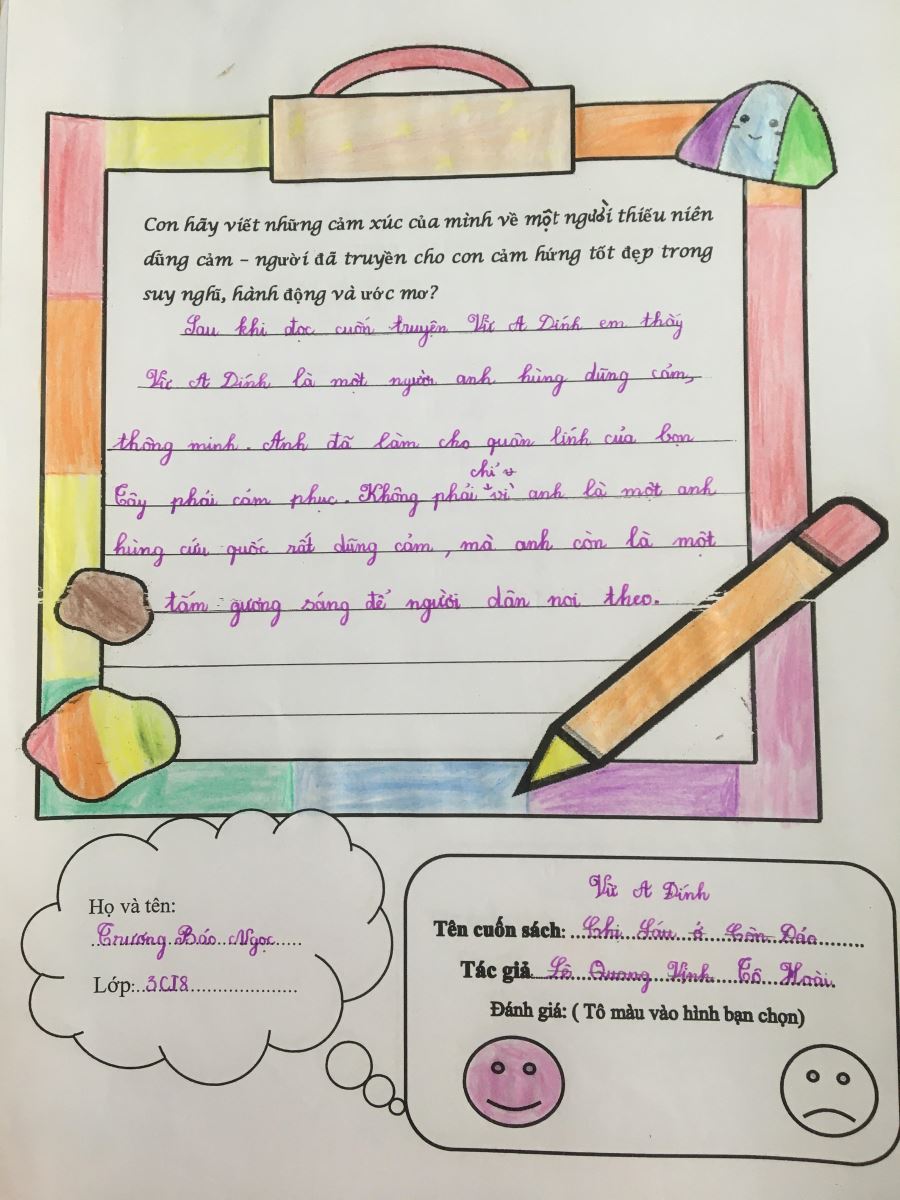 Con hãy viết những cảm xúc của mình về một người thiếu niên
dũng cảm – người đã truyền cho con cảm hứng tốt đẹp trong
suy nghĩ, hành động và ước mơ?
Sau khi đọc cuốn truyện Vừ A Dính em thấy
Vừ A Dính là một người anh hùng dũng cảm,
thông minh. Anh đã làm cho quân lính của bọn
Tây phải cảm phục. Không phải chỉ vì anh là một anh
hùng cứu quốc rất dũng cảm, mà anh còn là một
tấm gương sáng để người dân noi theo.
Họ và tên:
Trương Bảo Ngọc
Lớp: 3CI8
Vừ A Dính
Tên cuốn sách: Chị Sáu ở Côn Đảo
Tác giả Lê Quang Vịnh Tô Hoài
Đánh giá: ( Tô màu vào hình bạn chọn)